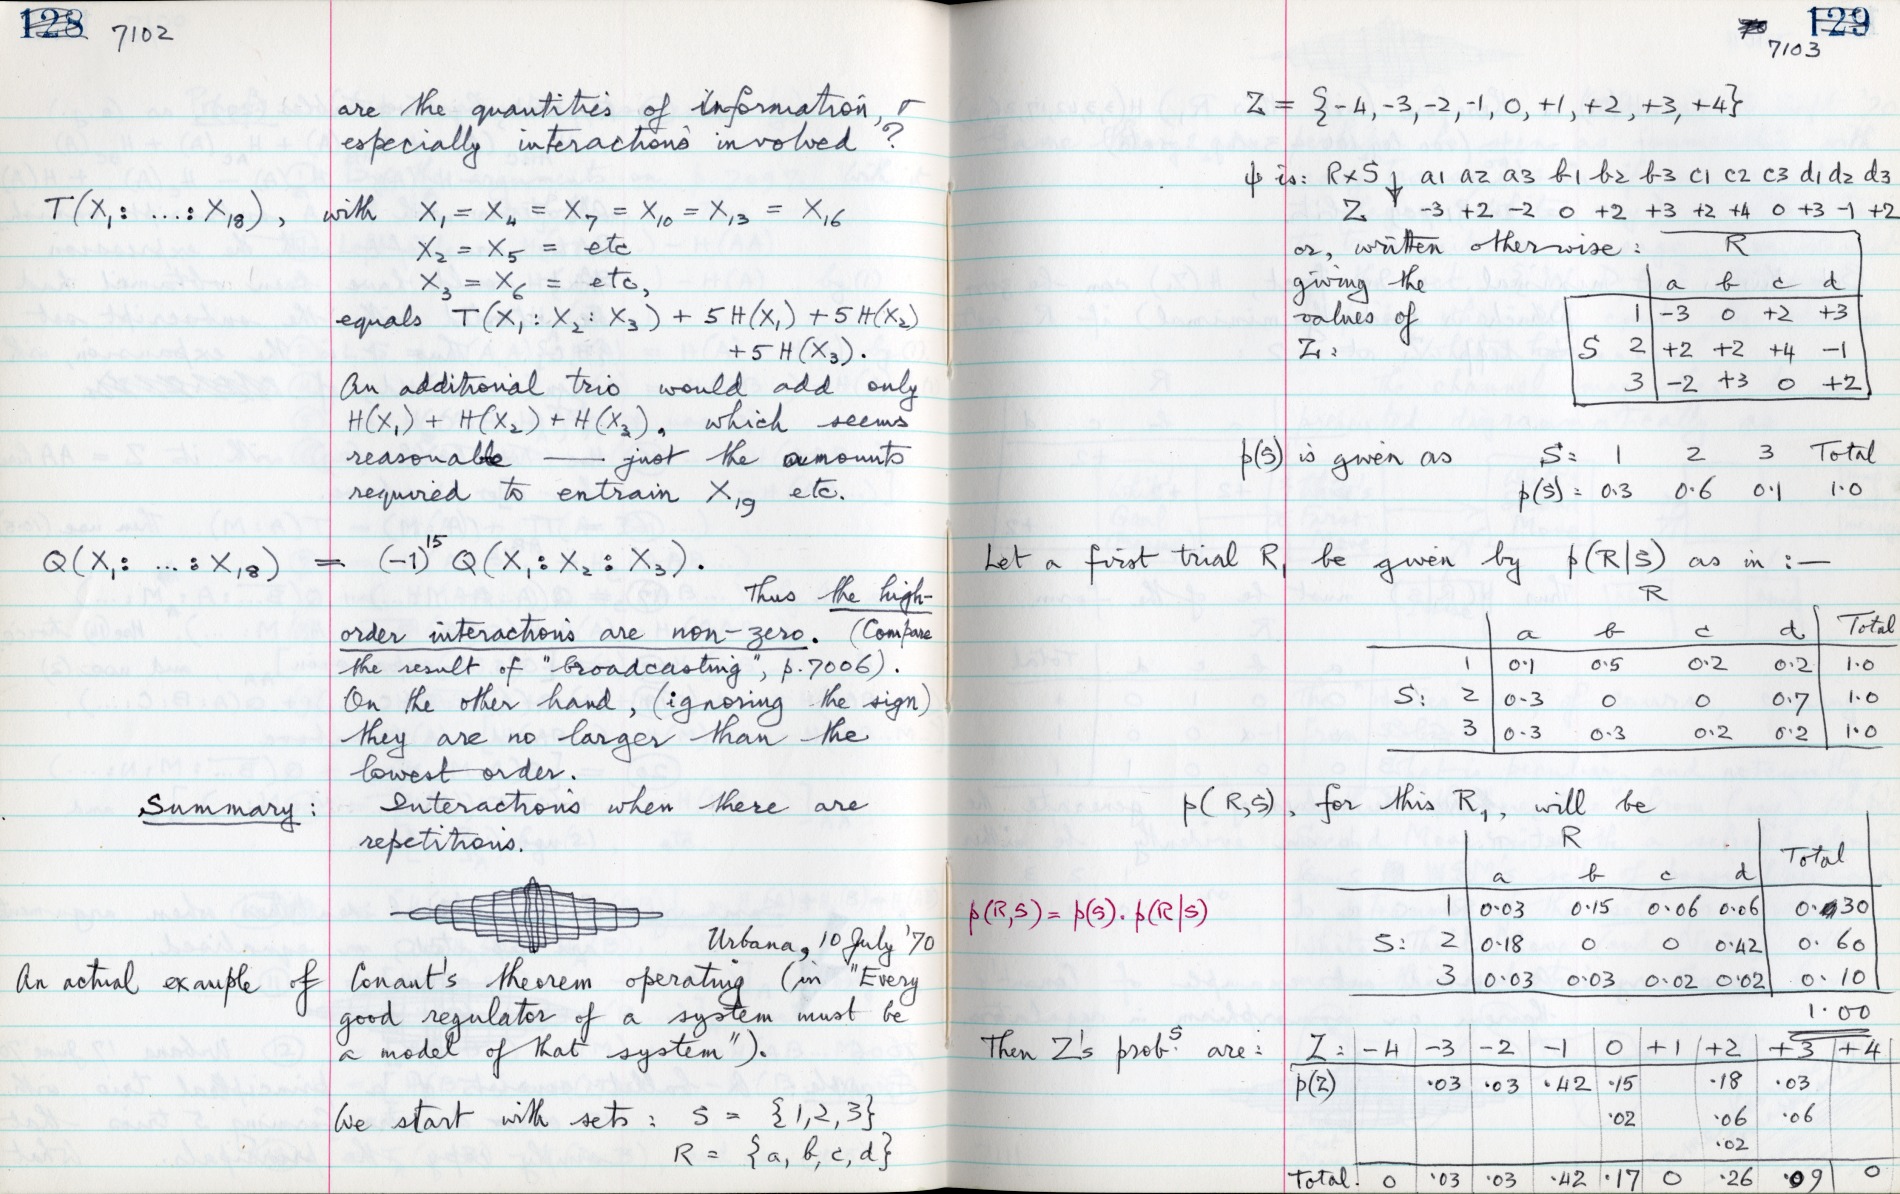 128 7102
are the quantities of information,
especially interactions involved ?
T(X₁: ...: X₁₈), with X₁ = X₄ = X₇ = X₁₀ = X₁₃ = X₁₆
X₂ = X₅ = etc
X₃ = X₆ = etc,
equals T(X₁ : X₂ : X₃) + 5H(X₁) + 5H(X₂)
+ 5H(X₃).
An additional trio would add only
H(X₁) + H(X₂) + H(X₃), which seems
reasonable — just the amounts
required to entrain X₁₉ etc.
Q(X₁: ... : X₁₈) = (-1)¹⁵ Q(X₁ : X₂ : X₃).
Thus the high-
order interactions are non-zero. (Compare
the result of "broadcasting", p.7006).
On the other hand, (ignoring the sign)
they are no larger than the
lowest order.
Summary: Interactions when there are
repetitions.
Urbana, 10 July '70
An actual example of Conant's theorem operating (in "Every
good regulator of a system must be
a model of that system").
We start with sets: S = {1,2,3}
R = {a, b, c, d}
129
7103
Z = {-4, -3, -2, -1, 0, +1, +2, +3, +4}
ψ is: R×S ↓ a1 a2 a3 b1 b2 b3 c1 c2 c3 d1 d2 d3
Z -3 +2 -2 0 +2 +3 +2 +4 0 +3 -1 +2
or, written otherwise: R
giving the a b c d
values of 1 -3 0 +2 +3
Z: S 2 +2 +2 +4 -1
3 -2 +3 0 +2
p(S) is given as S: 1 2 3 Total
p(S): 0.3 0.6 0.1 1.0
Let a first trial R₁ be given by p(R|S) as in :—
R
a b c d Total
1 0.1 0.5 0.2 0.2 1.0
S: 2 0.3 0 0 0.7 1.0
3 0.3 0.3 0.2 0.2 1.0
p(R,S), for this R₁, will be
R
a b c d Total
p(R,S) = p(S). p(R|S) 1 0.03 0.15 0.06 0.06 0.30
S: 2 0.18 0 0 0.42 0.60
3 0.03 0.03 0.02 0.02 0.10
1.00
Then Z's probs. are: Z: -4 -3 -2 -1 0 +1 +2 +3 +4
p(Z) .03 .03 .42 .15 .18 .03
.02 .06 .06
.02
Total: 0 .03 .03 .42 .17 0 .26 .09 0